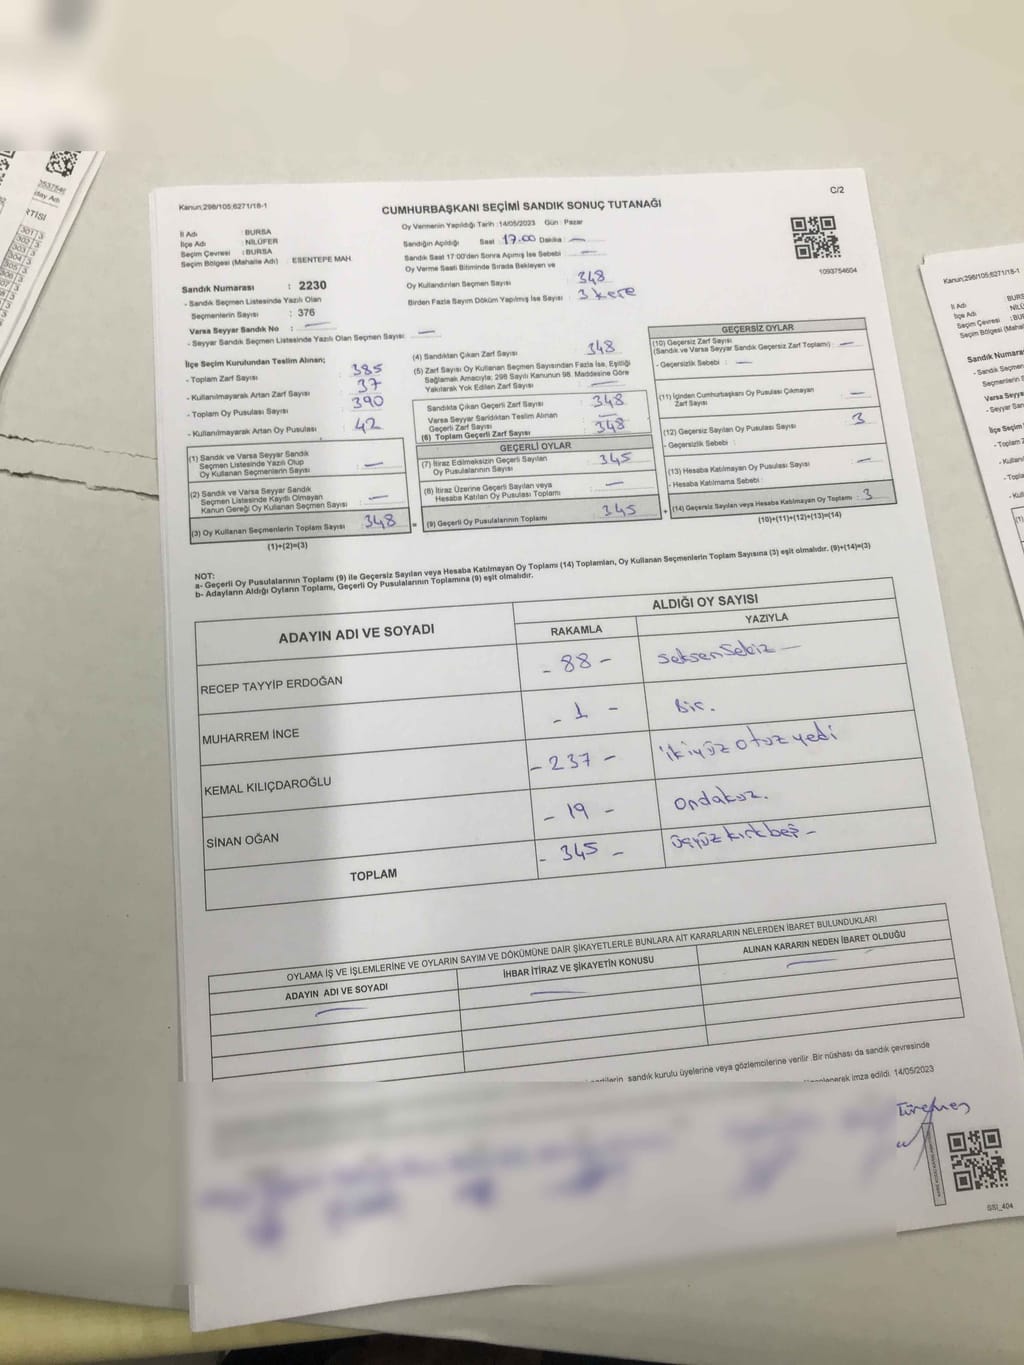 Kanun;298/105;6271/18-1
C/2
CUMHURBAŞKANI SEÇİMİ SANDIK SONUÇ TUTANAĞI
İl Adı : BURSA
İlçe Adı : NİLÜFER
Seçim Çevresi : BURSA
Seçim Bölgesi (Mahalle Adı) : ESENTEPE MAH.
Oy Vermenin Yapıldığı Tarih : 14/05/2023 Gün : Pazar
Sandığın Açıldığı Saat 17.00 Dakika —
Sandık Saat 17:00'den Sonra Açımış İse Sebebi —
Oy Verme Saati Bitiminde Sırada Bekleyen ve
Oy Kullandırılan Seçmen Sayısı : 348
Birden Fazla Sayım Döküm Yapılmış İse Sayısı : 3 kere
1093754604
Sandık Numarası : 2230
- Sandık Seçmen Listesinde Yazılı Olan
Seçmenlerin Sayısı : 376
Varsa Seyyar Sandık No : —
- Seyyar Sandık Seçmen Listesinde Yazılı Olan Seçmen Sayısı : —
İlçe Seçim Kurulundan Teslim Alınan;
- Toplam Zarf Sayısı : 385
- Kullanılmayarak Artan Zarf Sayısı : 37
- Toplam Oy Pusulası Sayısı : 390
- Kullanılmayarak Artan Oy Pusulası : 42
(1) Sandık ve Varsa Seyyar Sandık
Seçmen Listesinde Yazılı Olup
Oy Kullanan Seçmenlerin Sayısı : —
(2) Sandık ve Varsa Seyyar Sandık
Seçmen Listesinde Kayıtlı Olmayan
Kanun Gereği Oy Kullanan Seçmen Sayısı : —
(3) Oy Kullanan Seçmenlerin Toplam Sayısı : 348
(1)+(2)=(3)
(4) Sandıktan Çıkan Zarf Sayısı : 348
(5) Zarf Sayısı Oy Kullanan Seçmen Sayısından Fazla İse, Eşitliği
Sağlamak Amacıyla; 298 Sayılı Kanunun 98. Maddesine Göre
Yakılarak Yok Edilen Zarf Sayısı : —
Sandıkta Çıkan Geçerli Zarf Sayısı : 348
Varsa Seyyar Sandıktan Teslim Alınan
Geçerli Zarf Sayısı : —
(6) Toplam Geçerli Zarf Sayısı : 348
GEÇERLİ OYLAR
(7) İtiraz Edilmeksizin Geçerli Sayılan
Oy Pusulalarının Sayısı : 345
(8) İtiraz Üzerine Geçerli Sayılan veya
Hesaba Katılan Oy Pusulası Toplamı : —
= (9) Geçerli Oy Pusulalarının Toplamı : 345
GEÇERSİZ OYLAR
(10) Geçersiz Zarf Sayısı
(Sandık ve Varsa Seyyar Sandık Geçersiz Zarf Toplamı) : —
- Geçersizlik Sebebi : —
(11) İçinden Cumhurbaşkanı Oy Pusulası Çıkmayan
Zarf Sayısı : —
(12) Geçersiz Sayılan Oy Pusulası Sayısı : 3
- Geçersizlik Sebebi :
(13) Hesaba Katılmayan Oy Pusulası Sayısı : —
- Hesaba Katılmama Sebebi :
+ (14) Geçersiz Sayılan veya Hesaba Katılmayan Oy Toplamı : 3
(10)+(11)+(12)+(13)=(14)
NOT:
a- Geçerli Oy Pusulalarının Toplamı (9) ile Geçersiz Sayılan veya Hesaba Katılmayan Oy Toplamı (14) Toplamları, Oy Kullanan Seçmenlerin Toplam Sayısına (3) eşit olmalıdır. (9)+(14)=(3)
b- Adayların Aldığı Oyların Toplamı, Geçerli Oy Pusulalarının Toplamına (9) eşit olmalıdır.
ADAYIN ADI VE SOYADI
ALDIĞI OY SAYISI
RAKAMLA YAZIYLA
RECEP TAYYİP ERDOĞAN - 88 - seksensekiz —
MUHARREM İNCE - 1 - bir.
KEMAL KILIÇDAROĞLU - 237 - ikiyüz otuz yedi
SİNAN OĞAN - 19 - ondokuz.
TOPLAM - 345 - üçyüz kırk beş -
OYLAMA İŞ VE İŞLEMLERİNE VE OYLARIN SAYIM VE DÖKÜMÜNE DAİR ŞİKAYETLERLE BUNLARA AİT KARARLARIN NELERDEN İBARET BULUNDUKLARI
ADAYIN ADI VE SOYADI İHBAR İTİRAZ VE ŞİKAYETİN KONUSU ALINAN KARARIN NEDEN İBARET OLDUĞU
sandık kurulu üyelerine veya gözlemcilerine verilir. Bir nüshası da sandık çevresinde
imza edildi. 14/05/2023
SSİ_404
Kanun;298/105;6271/18-1
İl Adı
İlçe Adı
Seçim Çevresi
Seçim Bölgesi
Sandık Numarası